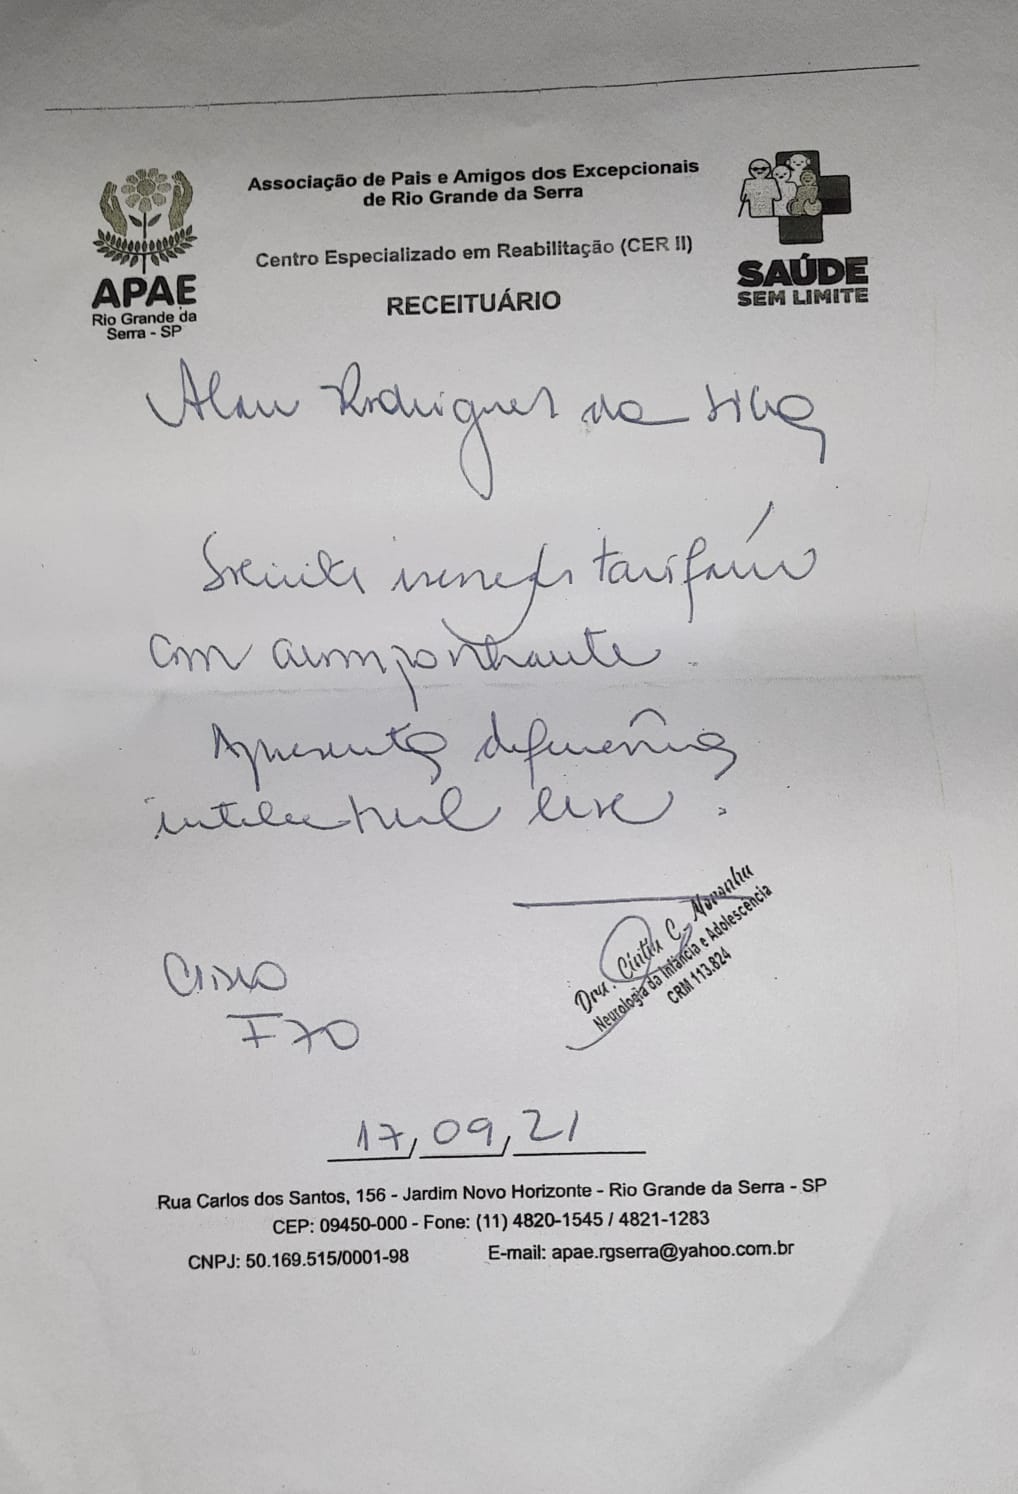 Associação de Pais e Amigos dos Excepcionais
de Rio Grande da Serra
Centro Especializado em Reabilitação (CER II)
RECEITUÁRIO
APAE
Rio Grande da
Serra - SP
SAÚDE
SEM LIMITE
Alan Rodrigues da Silva
Solicito isenção tarifária
com acompanhante.
Apresenta deficiência
intelectual leve.
Dra. Cintia C. Noronha
Neurologia da Infância e Adolescência
CRM 113.824
F70
17,09,21
Rua Carlos dos Santos, 156 - Jardim Novo Horizonte - Rio Grande da Serra - SP
CEP: 09450-000 - Fone: (11) 4820-1545 / 4821-1283
CNPJ: 50.169.515/0001-98 E-mail: apae.rgserra@yahoo.com.br